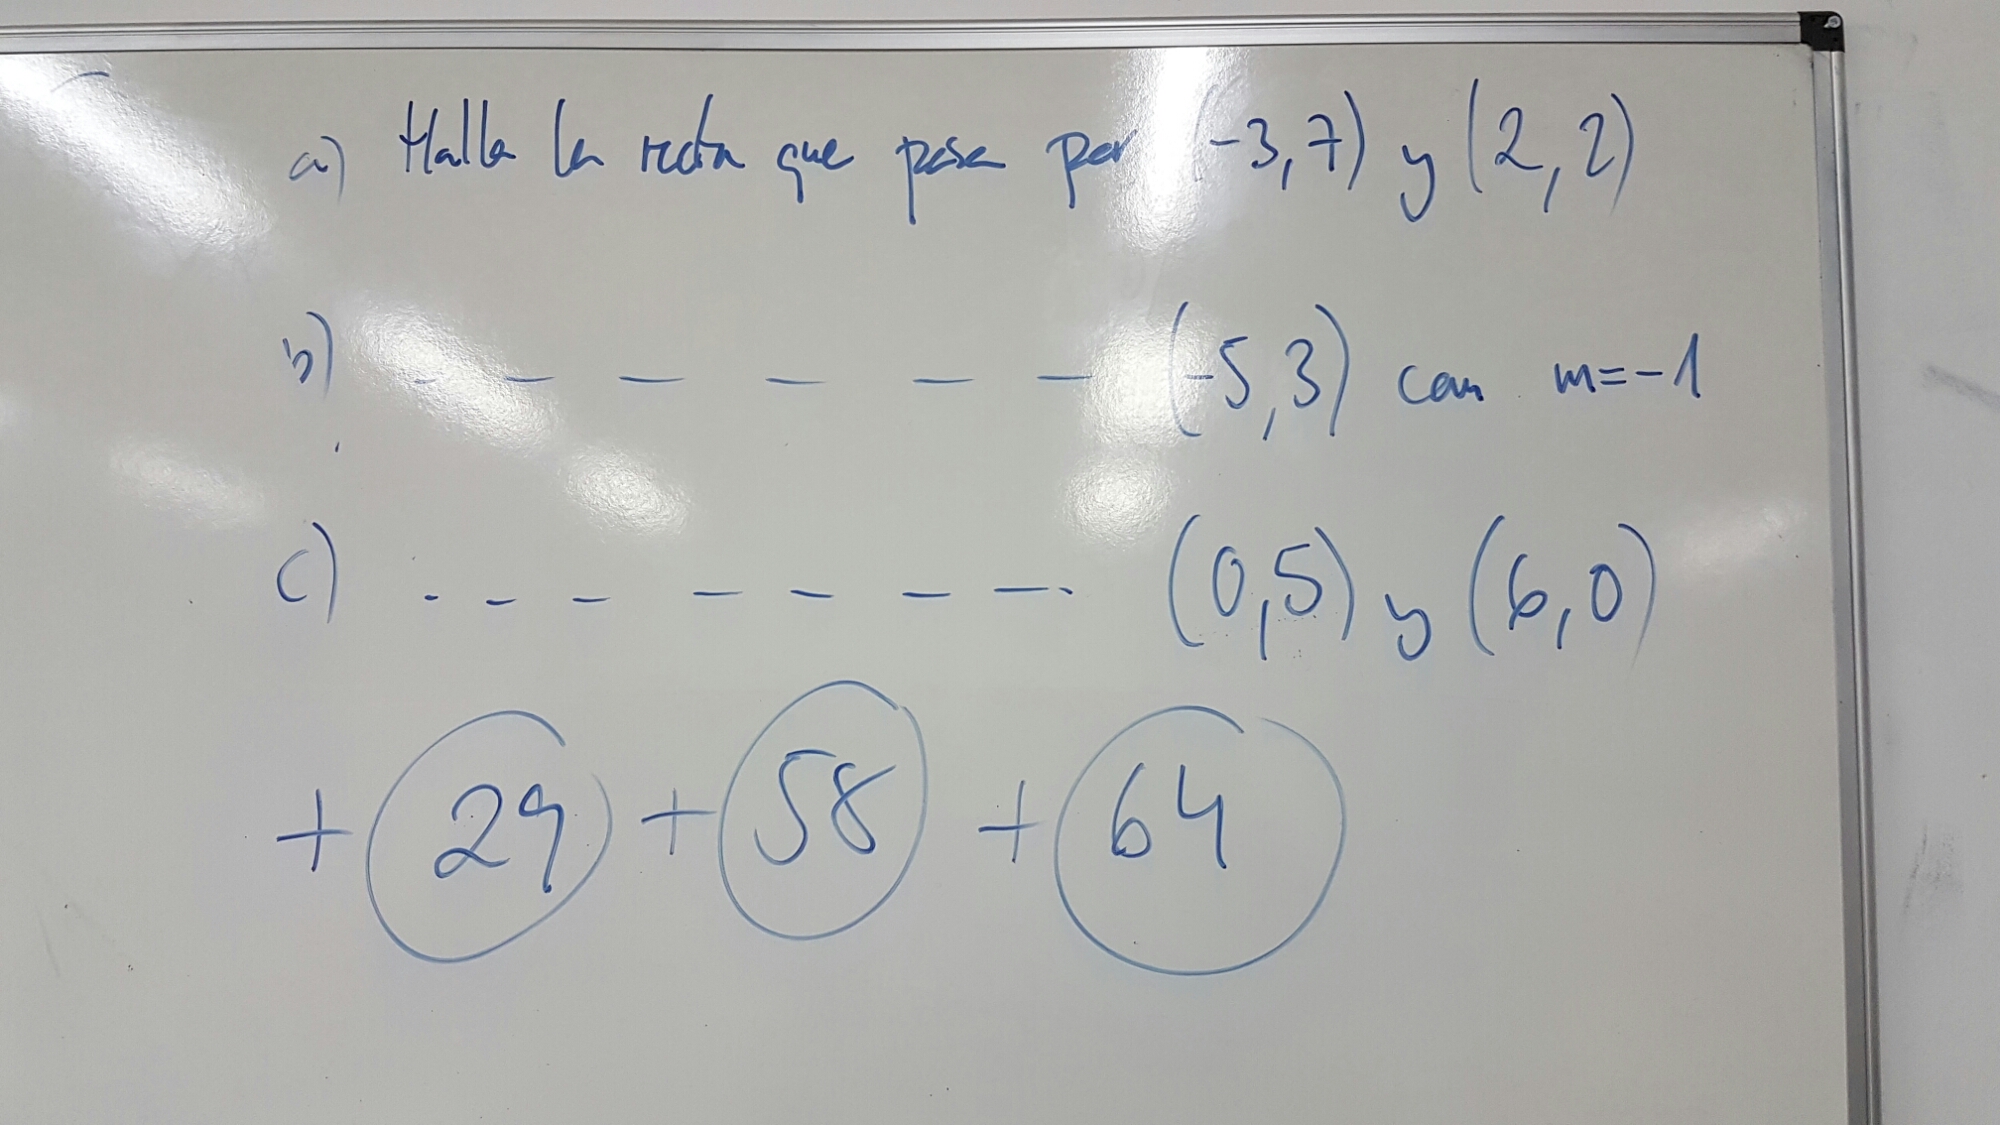 a) Halla la recta que pasa por (-3,7) y (2,2)
b) - - - - - - (-5,3) con m=-1
c) - - - - - - - (0,5) y (6,0)
+ 29 + 58 + 64